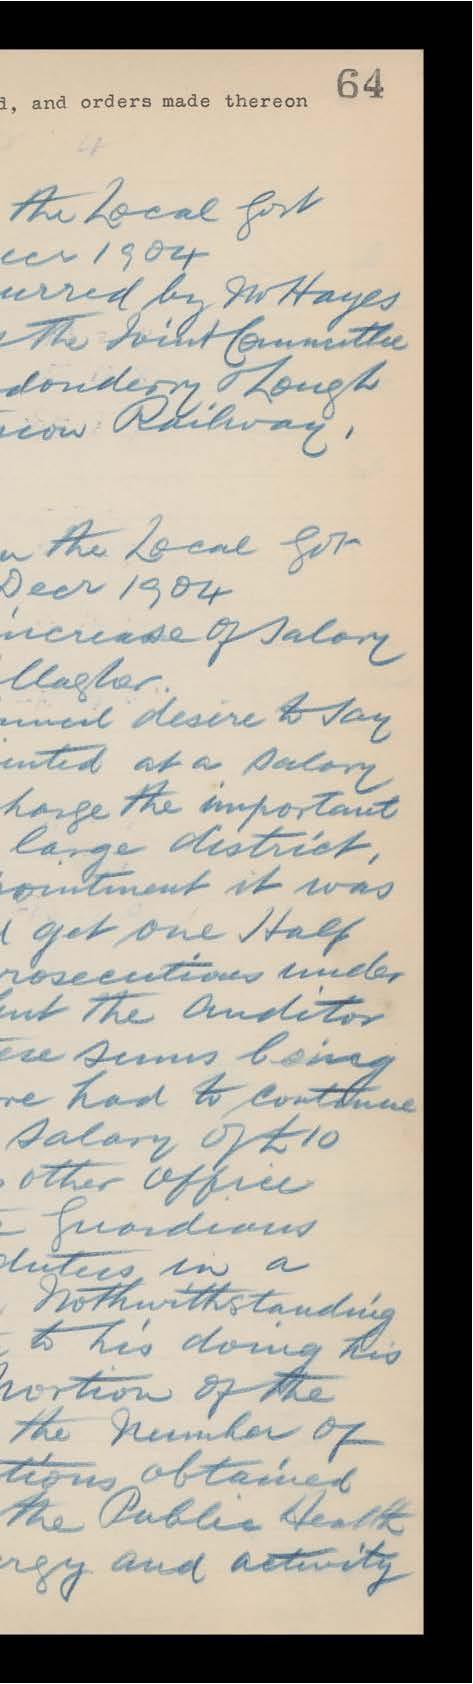 64
d, and orders made thereon
the Local Govt
ecr 1904
urred by Mr Hayes
the Joint Committee
donderry & Lough
sion Railway,
the Local Govt
Decr 1904
increase of Salary
llagher.
uncil desire to say
inted at a Salary
harge the important
large district,
pointment it was
d get one Half
rosecutions under
but the Auditor
ese sums being
re had to continue
Salary of £10
other office
Guardians
duties in a
Nothwithstanding
to his doing his
portion of the
the number of
tions obtained
the Public Health
ergy and activity